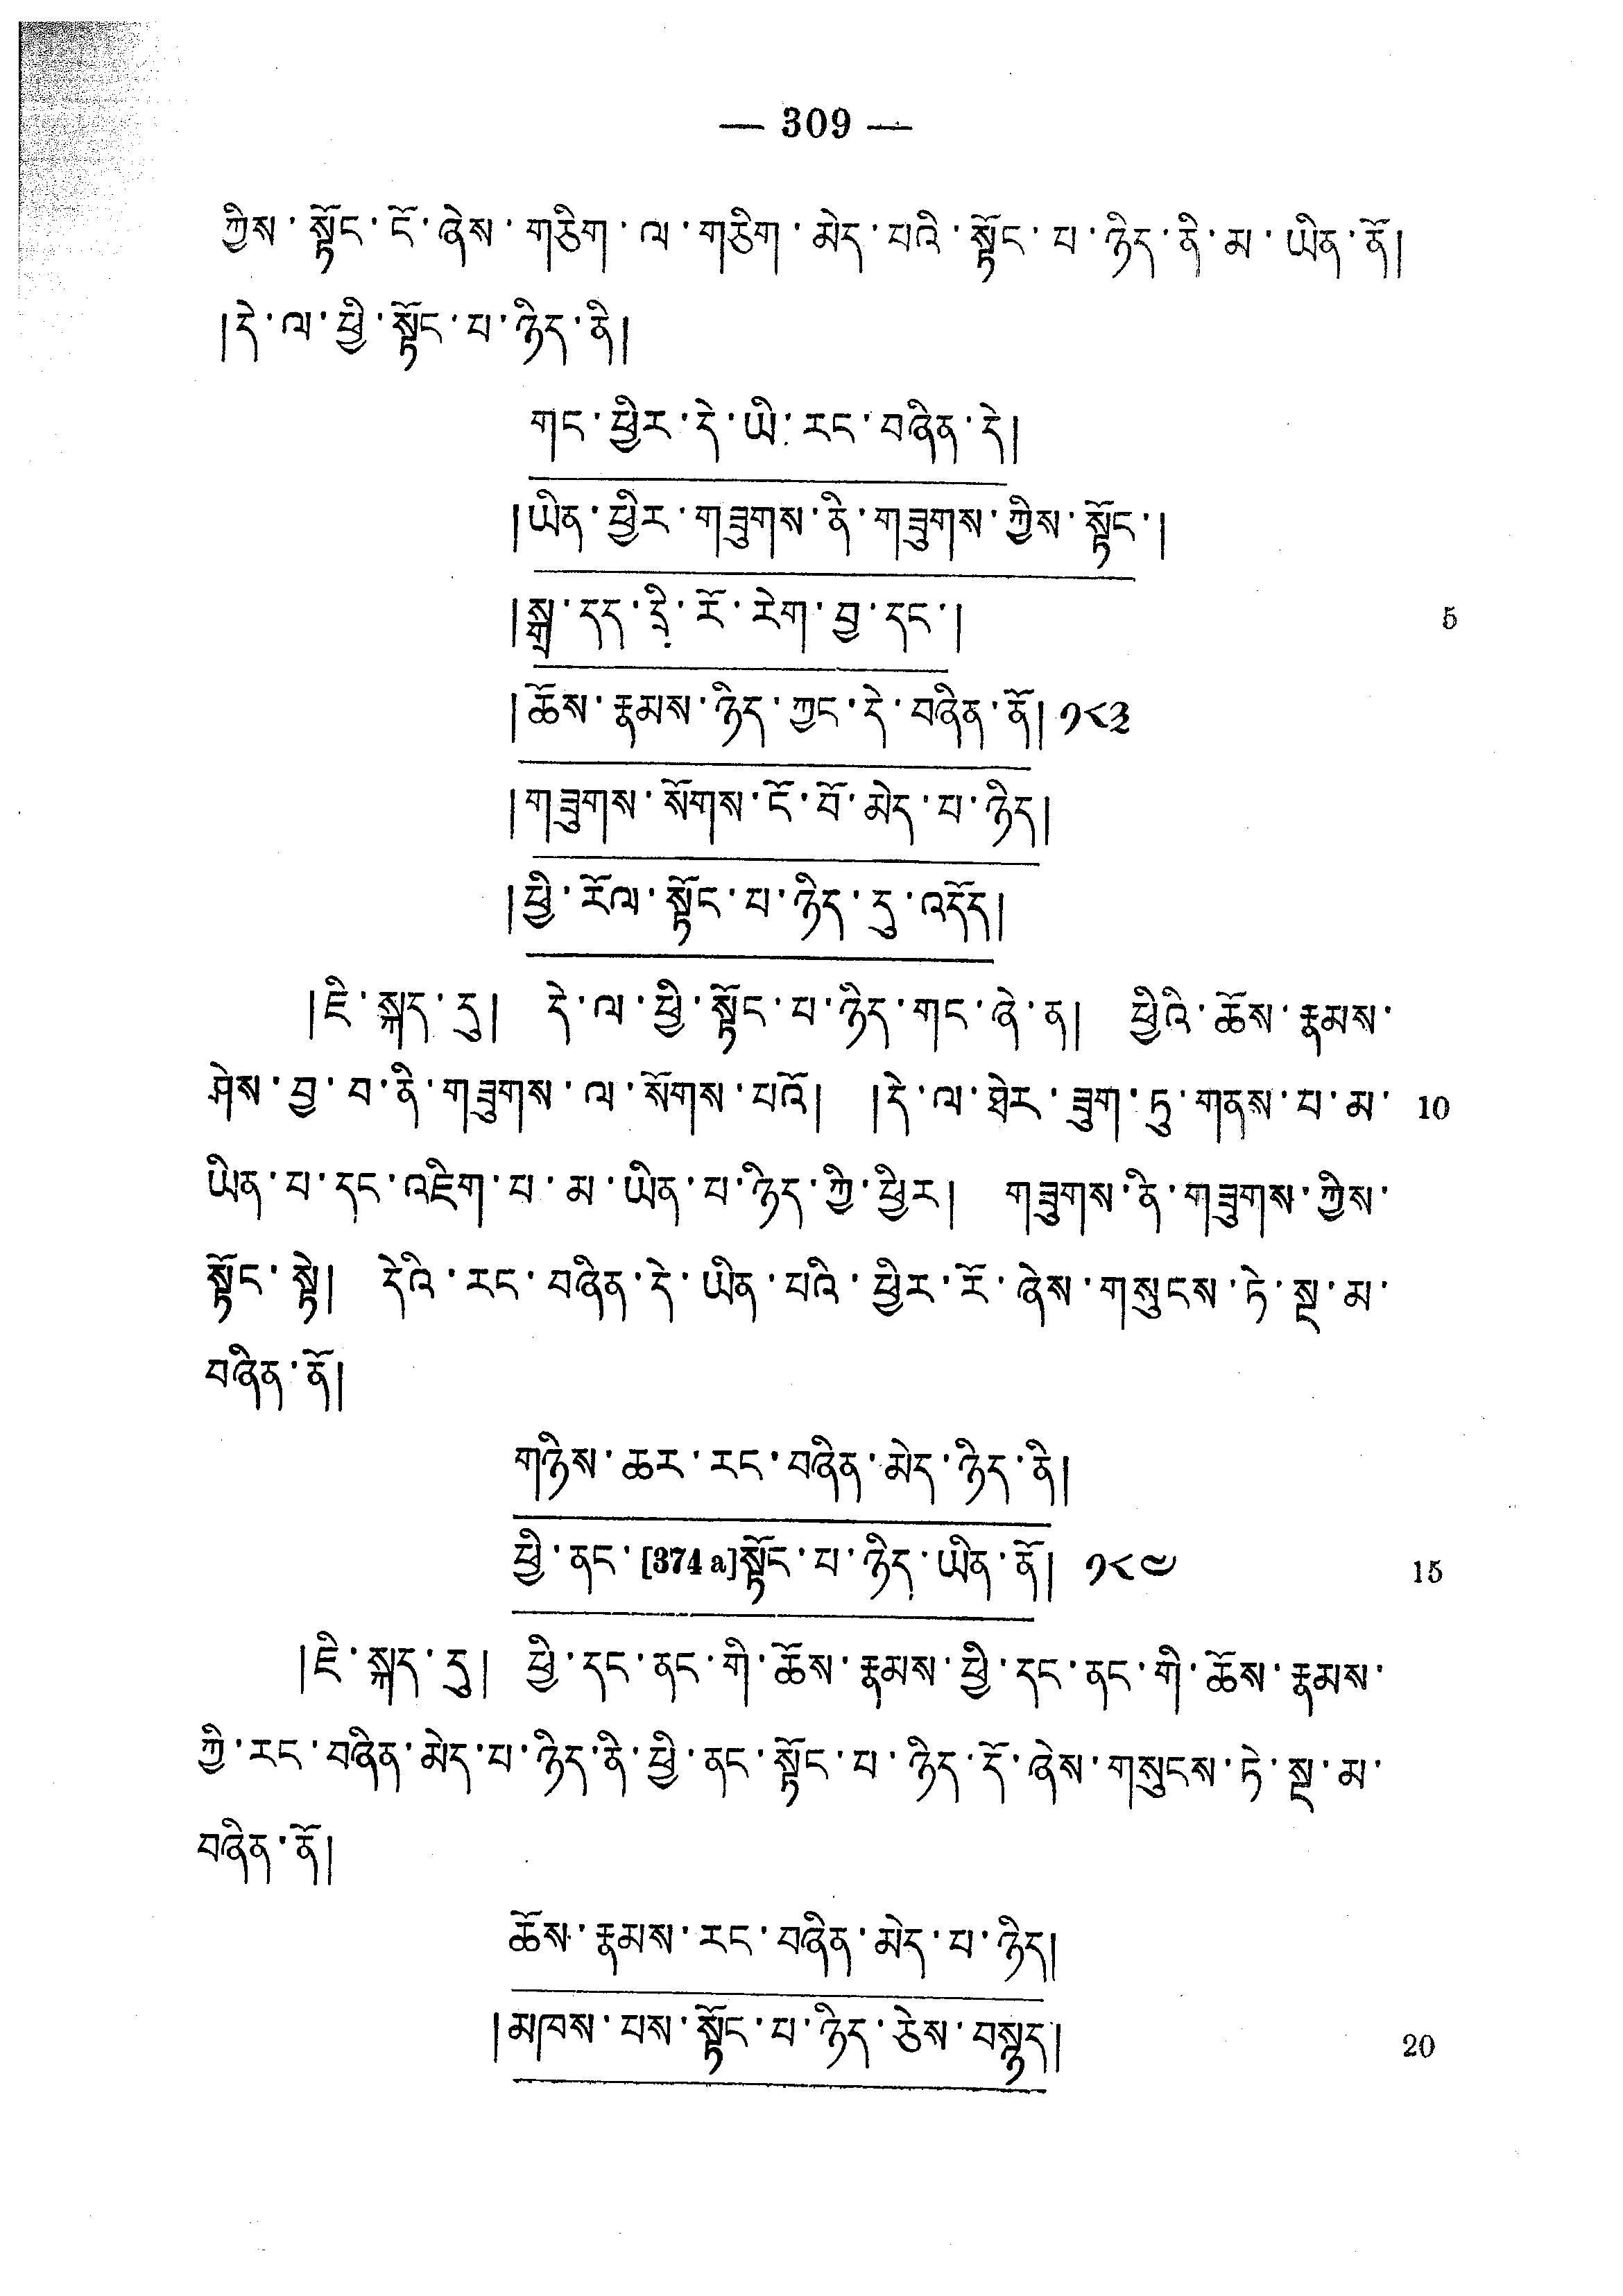 — 309 —
ཀྱིས་སྟོང་ངོ་ཞེས་གཅིག་ལ་གཅིག་མེད་པའི་སྟོང་པ་ཉིད་ནི་མ་ཡིན་ནོ།
།དེ་ལ་ཕྱི་སྟོང་པ་ཉིད་ནི།
གང་ཕྱིར་དེ་ཡི་རང་བཞིན་དེ།
།ཡིན་ཕྱིར་གཟུགས་ནི་གཟུགས་ཀྱིས་སྟོང་།
།སྒྲ་དད་དྲི་རོ་རེག་བྱ་དང་། 5
།ཆོས་རྣམས་ཉིད་ཀྱང་དེ་བཞིན་ནོ། ༡༨༣
།གཟུགས་སོགས་ངོ་བོ་མེད་པ་ཉིད།
།ཕྱི་རོལ་སྟོང་པ་ཉིད་དུ་འདོད།
།ཇི་སྐད་དུ། དེ་ལ་ཕྱི་སྟོང་པ་ཉིད་གང་ཞེ་ན། ཕྱིའི་ཆོས་རྣམས་
ཤེས་བྱ་བ་ནི་གཟུགས་ལ་སོགས་པའོ། །དེ་ལ་ཐེར་ཟུག་ཏུ་གནས་པ་མ་ 10
ཡིན་པ་དང་འཇིག་པ་མ་ཡིན་པ་ཉིད་ཀྱི་ཕྱིར། གཟུགས་ནི་གཟུགས་ཀྱིས་
སྟོང་སྟེ། དེའི་རང་བཞིན་དེ་ཡིན་པའི་ཕྱིར་རོ་ཞེས་གསུངས་ཏེ་སྔ་མ་
བཞིན་ནོ།
གཉིས་ཆར་རང་བཞིན་མེད་ཉིད་ནི།
ཕྱི་ནང་[374 a]སྟོང་པ་ཉིད་ཡིན་ནོ། ༡༨༤ 15
།ཇི་སྐད་དུ། ཕྱི་དང་ནང་གི་ཆོས་རྣམས་ཕྱི་དང་ནང་གི་ཆོས་རྣམས་
ཀྱི་རང་བཞིན་མེད་པ་ཉིད་ནི་ཕྱི་ནང་སྟོང་པ་ཉིད་དོ་ཞེས་གསུངས་ཏེ་སྔ་མ་
བཞིན་ནོ།
ཆོས་རྣམས་རང་བཞིན་མེད་པ་ཉིད།
།མཁས་པས་སྟོང་པ་ཉིད་ཅེས་བསྙད། 20